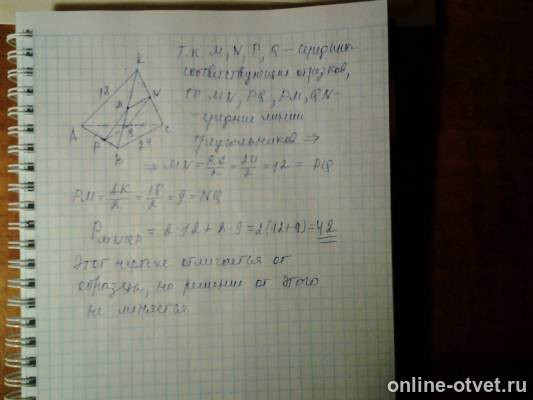 Т.К M, N, P, Q - середины
соответствующих отрезков,
то MN, PQ, PM, QN -
- средние линии
треугольников ⇒
⇒ MN = BC/2 = 24/2 = 12 = PQ
PM = AK/2 = 18/2 = 9 = NQ
P MNQP = 2·12 + 2·9 = 2(12+9) = 42
Этот чертеж отличается от
образца, но решение от этого
не меняется
K
18
N
M
A
Q
C
P
B
24
online-otvet.ru